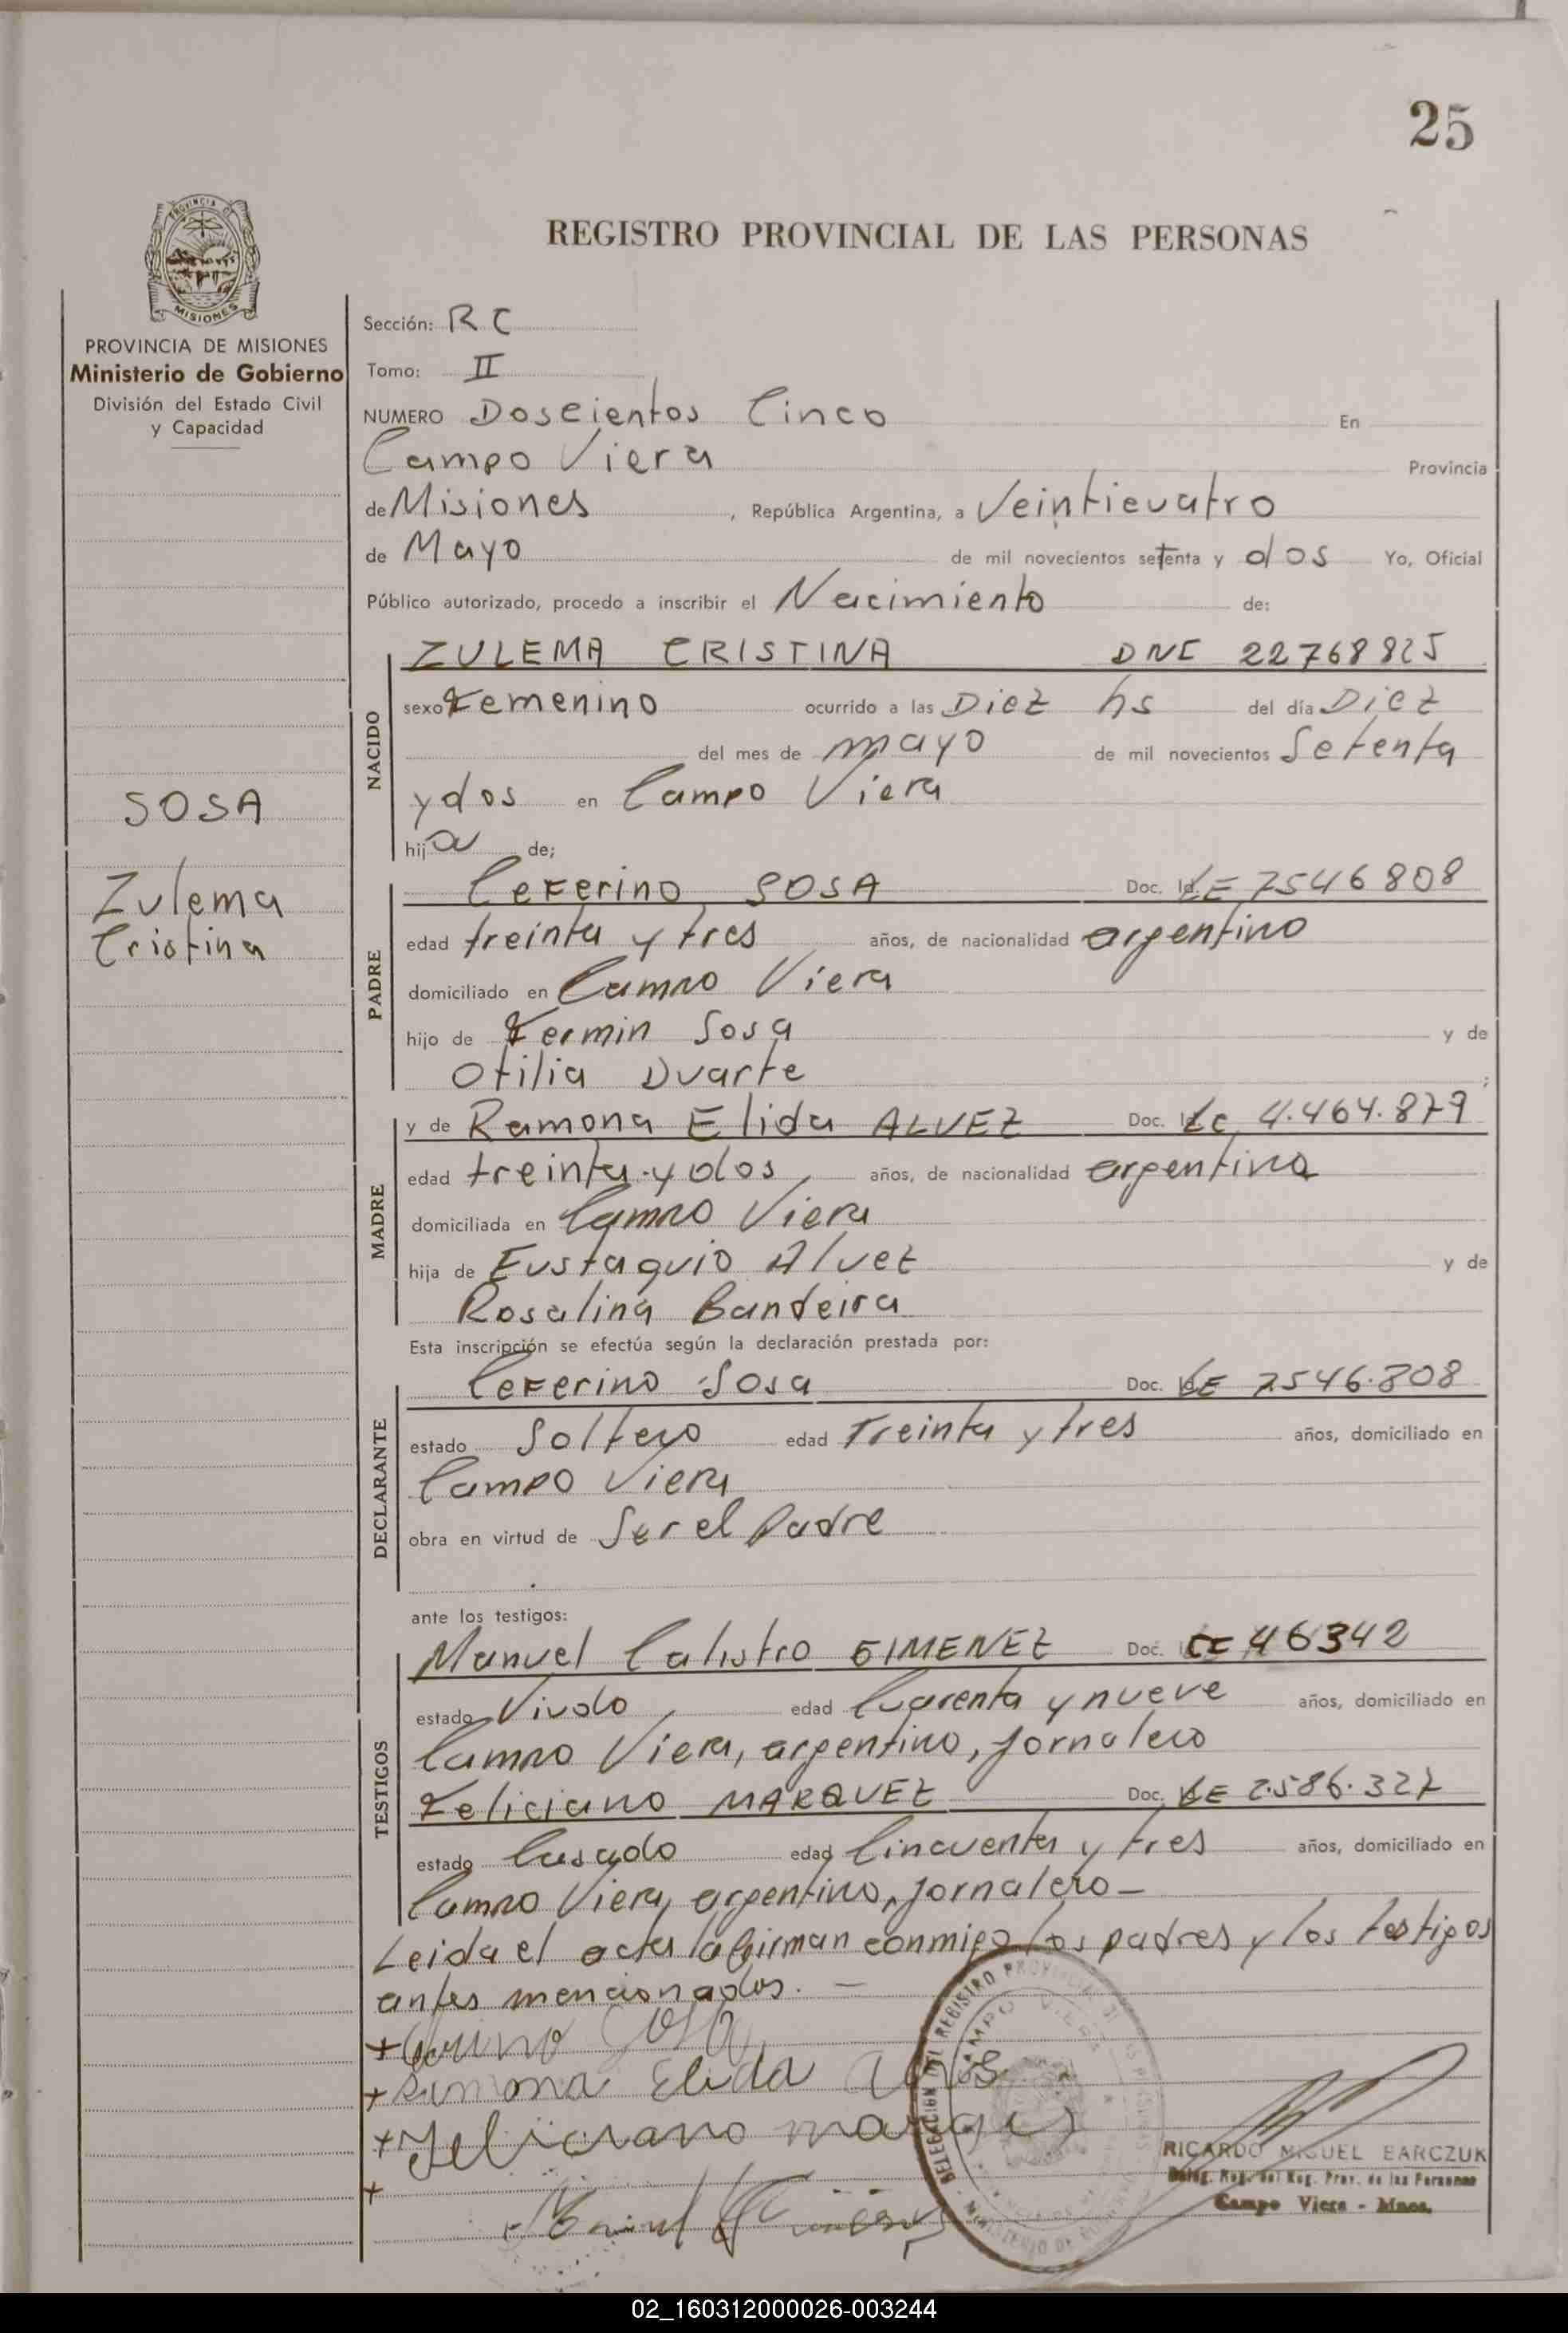 25
REGISTRO PROVINCIAL DE LAS PERSONAS
PROVINCIA DE MISIONES
Ministerio de Gobierno
División del Estado Civil
y Capacidad
SOSA
Zulema
Cristina
Sección: R C
Tomo: II
NUMERO Doscientos Cinco En
Campo Viera Provincia
de Misiones, República Argentina, a Veinticuatro
de Mayo de mil novecientos setenta y dos Yo, Oficial
Público autorizado, procedo a inscribir el Nacimiento de:
NACIDO
ZULEMA CRISTINA DNI 22768825
sexo Femenino ocurrido a las Diez hs del día Diez
del mes de mayo de mil novecientos Setenta
y dos en Campo Viera
hija de;
PADRE
Ceferino SOSA Doc. Id. LE 7546808
edad treinta y tres años, de nacionalidad argentino
domiciliado en Campo Viera
hijo de Fermin Sosa y de
Otilia Duarte ;
MADRE
y de Ramona Elida ALVEZ Doc. Lc 4.464.879
edad treinta y dos años, de nacionalidad argentina
domiciliada en Campo Viera
hija de Eustaquio Alvez y de
Rosalina Bandeira
Esta inscripción se efectúa según la declaración prestada por:
DECLARANTE
Ceferino Sosa Doc. Id. LE 7546.808
estado Soltero edad Treinta y tres años, domiciliado en
Campo Viera
obra en virtud de Ser el Padre
ante los testigos:
TESTIGOS
Manuel Calistro GIMENEZ Doc. CE 46342
estado Viudo edad Cuarenta y nueve años, domiciliado en
Campo Viera, argentino, Jornalero
Feliciano MARQUEZ Doc. LE 2.586.327
estado Casado edad Cincuenta y tres años, domiciliado en
Campo Viera, argentino, Jornalero —
Leida el acta la firman conmigo los padres y los testigos
antes mencionados. —
+ Sosa
+ Ramona Elida Alves
+ Feliciano
+ Manuel
DELEGACION DEL REGISTRO PROVINCIAL DE LAS PERSONAS
CAMPO VIERA
MINISTERIO DE
RICARDO MIGUEL BARCZUK
Deleg. Reg. del Reg. Prov. de las Personas
Campo Viera - Mnes.
02_160312000026-003244